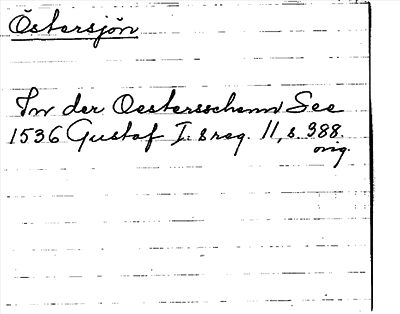 Östersjön
In der Oesterschenn See
1536 Gustaf I:s reg. 11, s. 388.
orig.